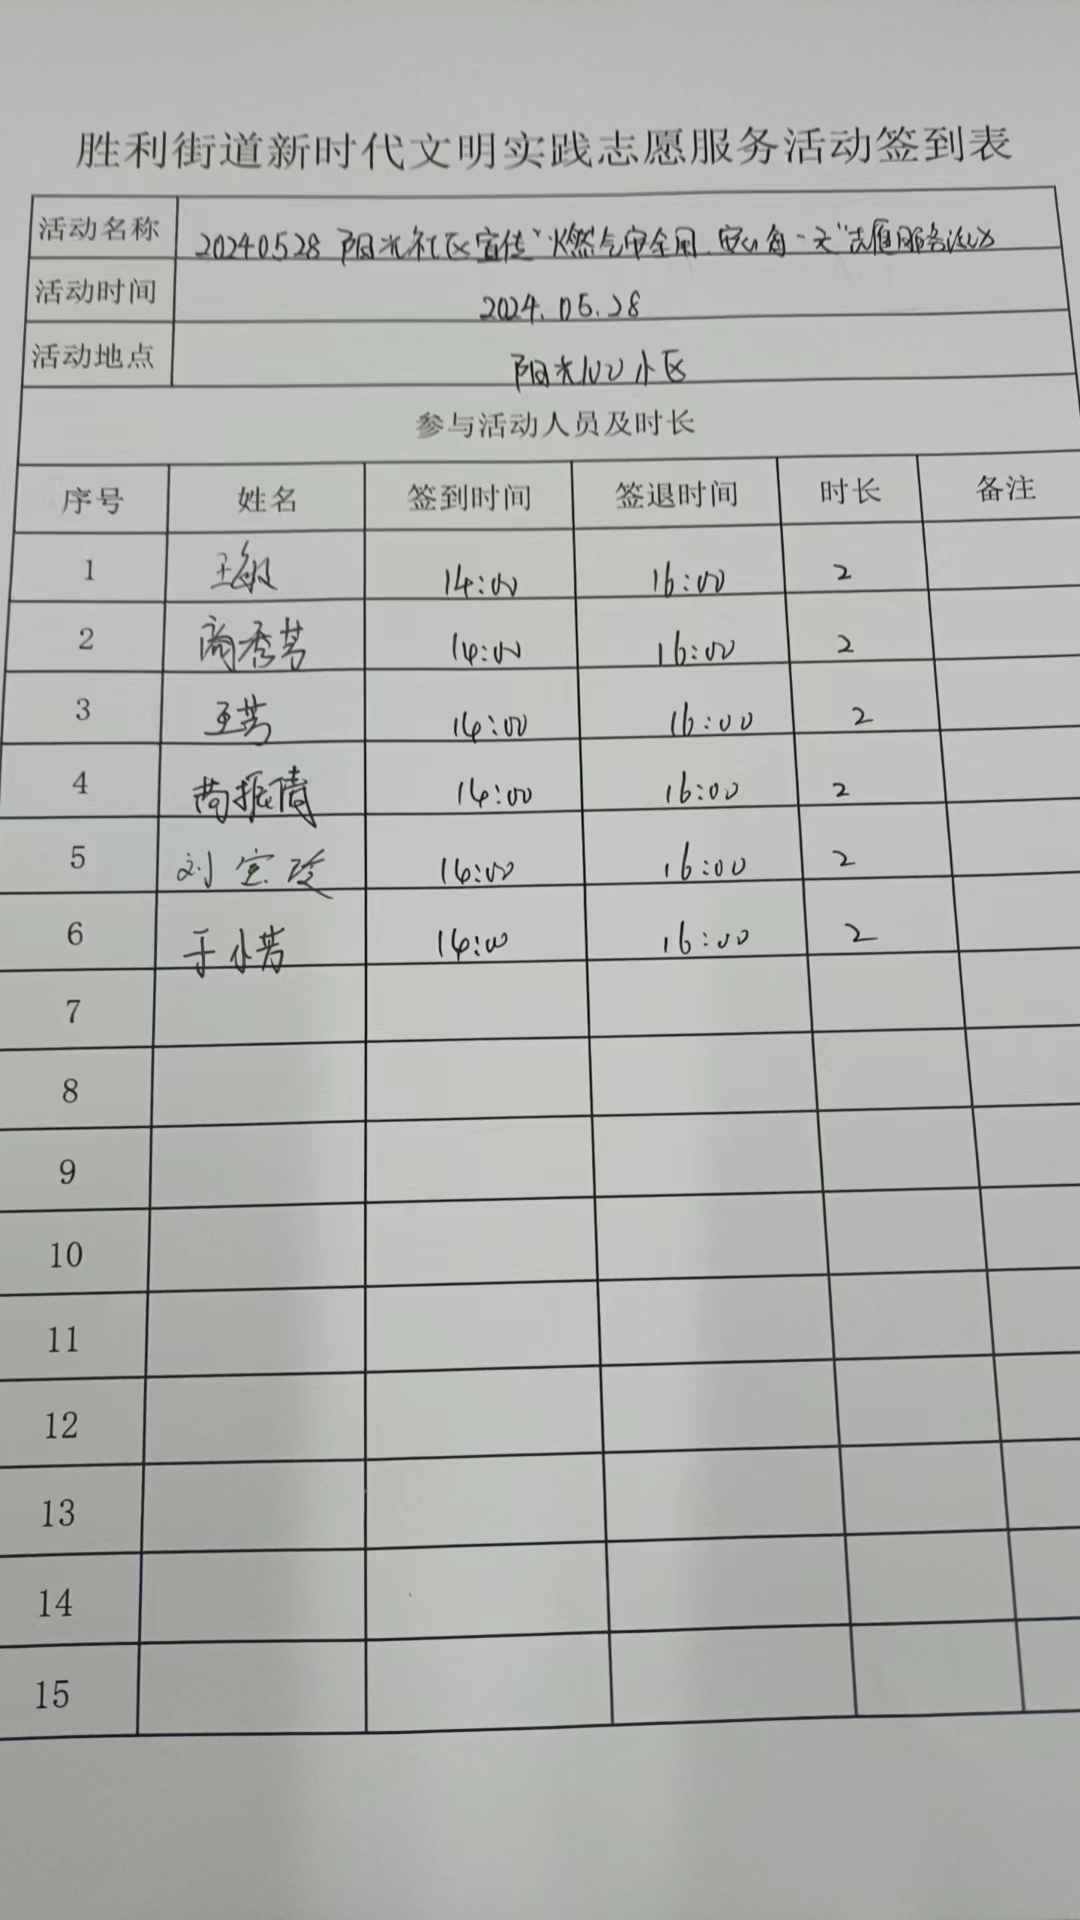 胜利街道新时代文明实践志愿服务活动签到表
活动名称 20240528 阳光社区宣传“燃气安全用、安心每一天”志愿服务活动
活动时间 2024.05.28
活动地点 阳光100小区
参与活动人员及时长
序号 姓名 签到时间 签退时间 时长 备注
1 王敏 14:00 16:00 2
2 商秀芳 14:00 16:00 2
3 王芳 14:00 16:00 2
4 14:00 16:00 2
5 刘宝玲 14:00 16:00 2
6 于小芳 14:00 16:00 2
7
8
9
10
11
12
13
14
15